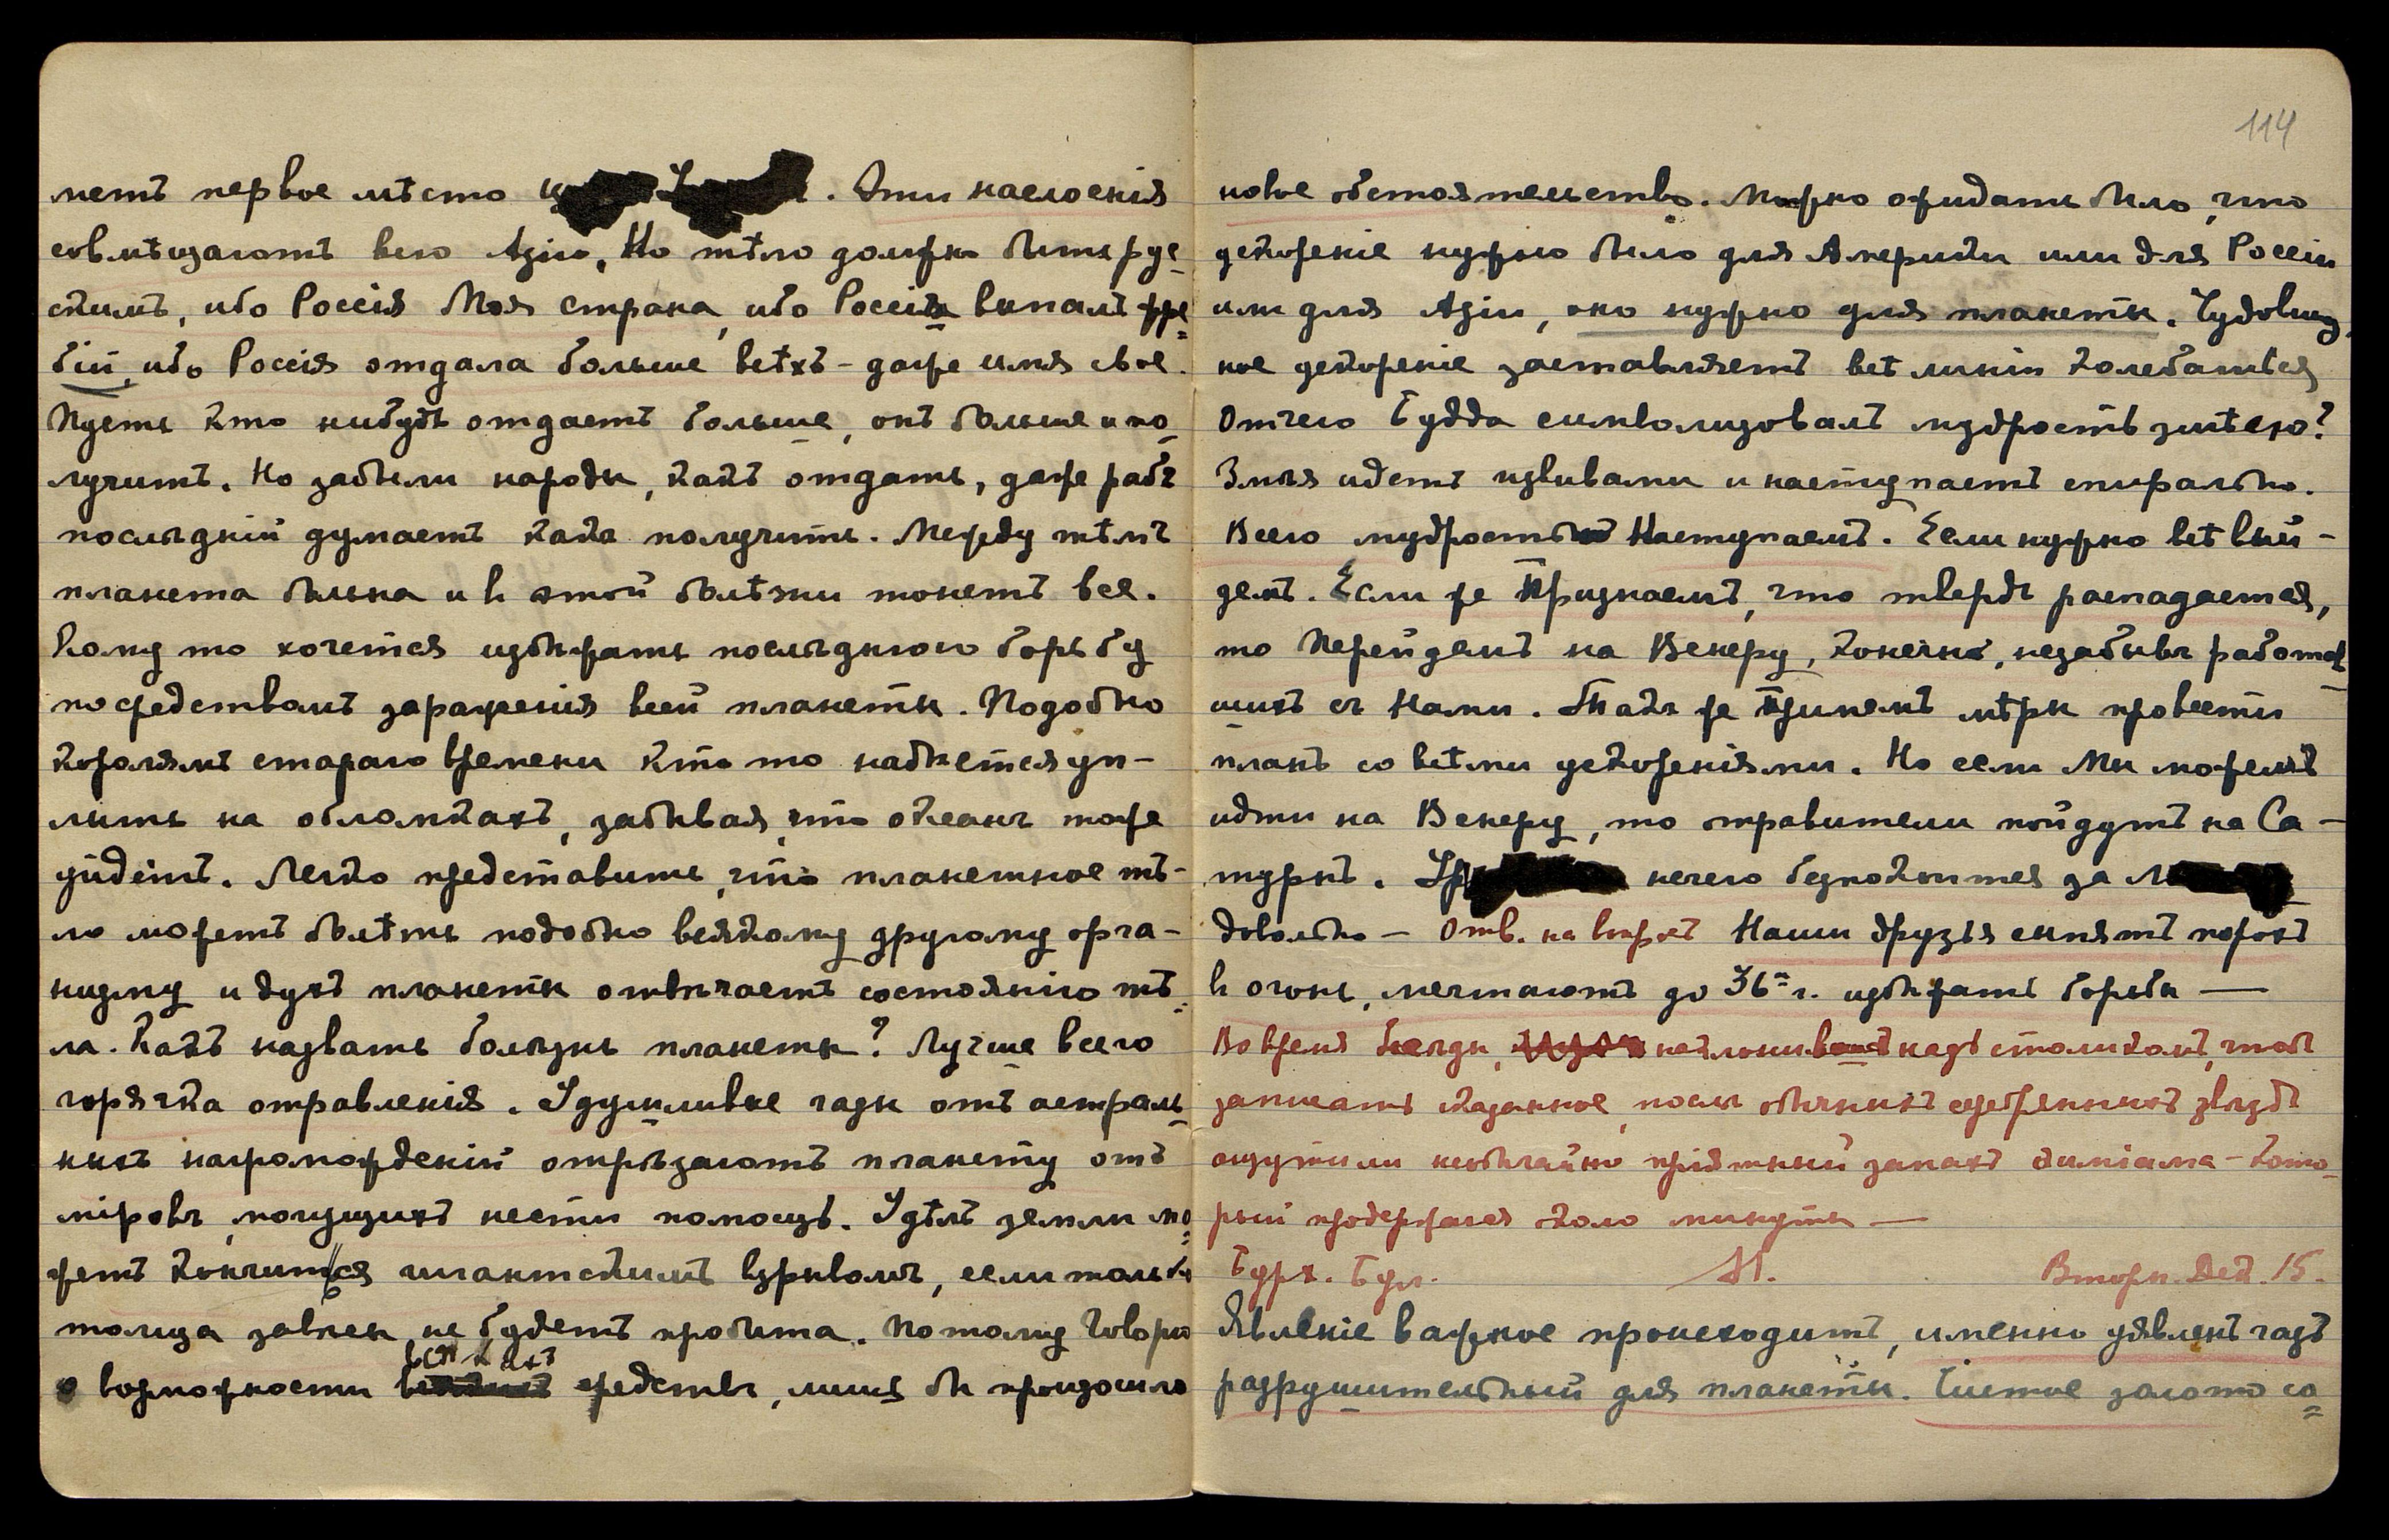 метъ первое мѣсто . Эти наслоенія
совмѣщаютъ всю Азію. Но тѣло должно быть рус-
скимъ, ибо Россія Моя Страна, ибо Россіи выпалъ жре-
бій, ибо Россія отдала больше всѣхъ - даже имя свое.
Пусть кто нибудь отдаетъ больше, онъ больше и по-
лучитъ. Но забыли народы, какъ отдать, даже рабъ
послѣдній думаетъ какъ получить. Между тѣмъ
планета больна и въ этой болѣзни тонетъ все.
Кому то хочется избѣжать послѣднюю борьбу
посредствомъ зараженія всей планеты. Подобно
королямъ стараго времени кто то надѣется уп-
лыть на обломкахъ, забывая, что океанъ тоже
уйдетъ. Легко представить, что планетное тѣ-
ло можетъ болѣть подобно всякому другому орга-
низму и духъ планеты отвѣчаетъ состоянію тѣ-
ла. Какъ назвать болѣзнь планеты? Лучше всего
горячка отравленія. Удушливые газы отъ астраль-
ныхъ нагроможденій отрѣзаютъ планету отъ
міровъ, могущихъ нести помощь. Удѣлъ земли мо-
жетъ кончиться гигантскимъ взрывомъ, если только
толща завѣсы не будетъ пробита. Потому Говорю
о возможности всякихъ средствъ, лишь бы произошло
114
новое обстоятельство. Можно ожидать было, что
ускореніе нужно было для Америки или для Россіи
или для Азіи, оно нужно для планеты. Чудовищ-
ное ускореніе заставляетъ всѣ линіи колебаться
Отчего Будда символизовалъ мудрость змѣею?
Змѣя идетъ извивами и наступаетъ спирально.
Всею мудростью Наступаемъ. Если нужно все Вый-
демъ. Если же Признаемъ, что твердь распадается,
то Перейдемъ на Венеру, конечно, не забывъ работав-
шихъ съ Нами. Также Примемъ мѣры провести
планъ со всѣми ускореніями. Но если Мы можемъ
идти на Венеру, то отравители пойдутъ на Са-
турнъ. нечего безпокоиться за
довольно - Отв. на вопросъ Наши друзья сыпятъ порохъ
въ огонь, мечтаютъ до 36го г. избѣжать борьбы —
Во время бесѣды, наклонившись надъ столикомъ, чтобъ
записать сказанное, послѣ обычныхъ серебряныхъ звѣздъ
ощутили необычайно пріятный запахъ ѳиміама - кото-
рый продержался около минуты —
Бурх. Бул. М. Вторн. Дек. 15.
Явленіе важное происходитъ, именно уявленъ газъ
разрушительный для планеты. Чистое золото со-